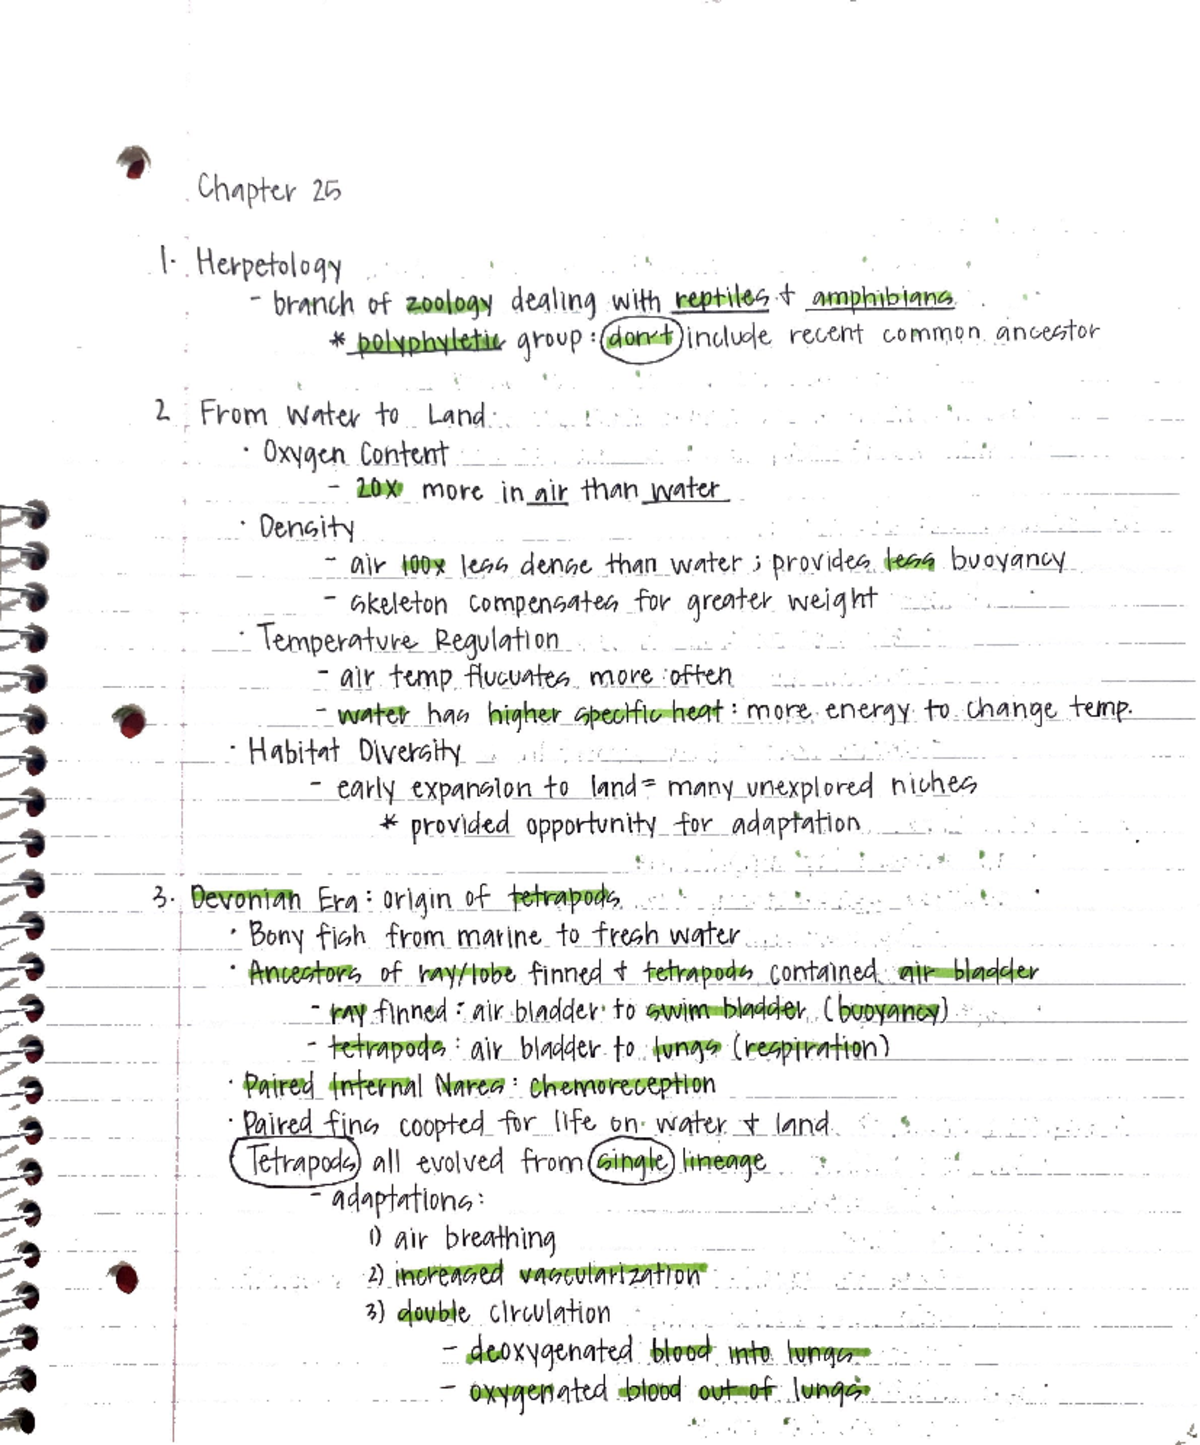 Chapter 25
1. Herpetology
- branch of zoology dealing with reptiles + amphibians
* polyphyletic group: don't include recent common ancestor
2 From Water to Land
· Oxygen Content
- 20x more in air than water
· Density
- air 100x less dense than water; provides less buoyancy
- skeleton compensates for greater weight
· Temperature Regulation
- air temp flucuates more often
- water has higher specific heat: more energy to change temp.
· Habitat Diversity
- early expansion to land = many unexplored niches
* provided opportunity for adaptation
3. Devonian Era: origin of tetrapods
· Bony fish from marine to fresh water
· Ancestors of ray/lobe finned + tetrapods contained air bladder
- ray finned: air bladder to swim bladder (buoyancy)
- tetrapods: air bladder to lungs (respiration)
· Paired Internal Nares: chemoreception
· Paired fins coopted for life on water + land
Tetrapods all evolved from single lineage
- adaptations:
1) air breathing
2) increased vascularization
3) double circulation
- deoxygenated blood into lungs
- oxygenated blood out of lungs